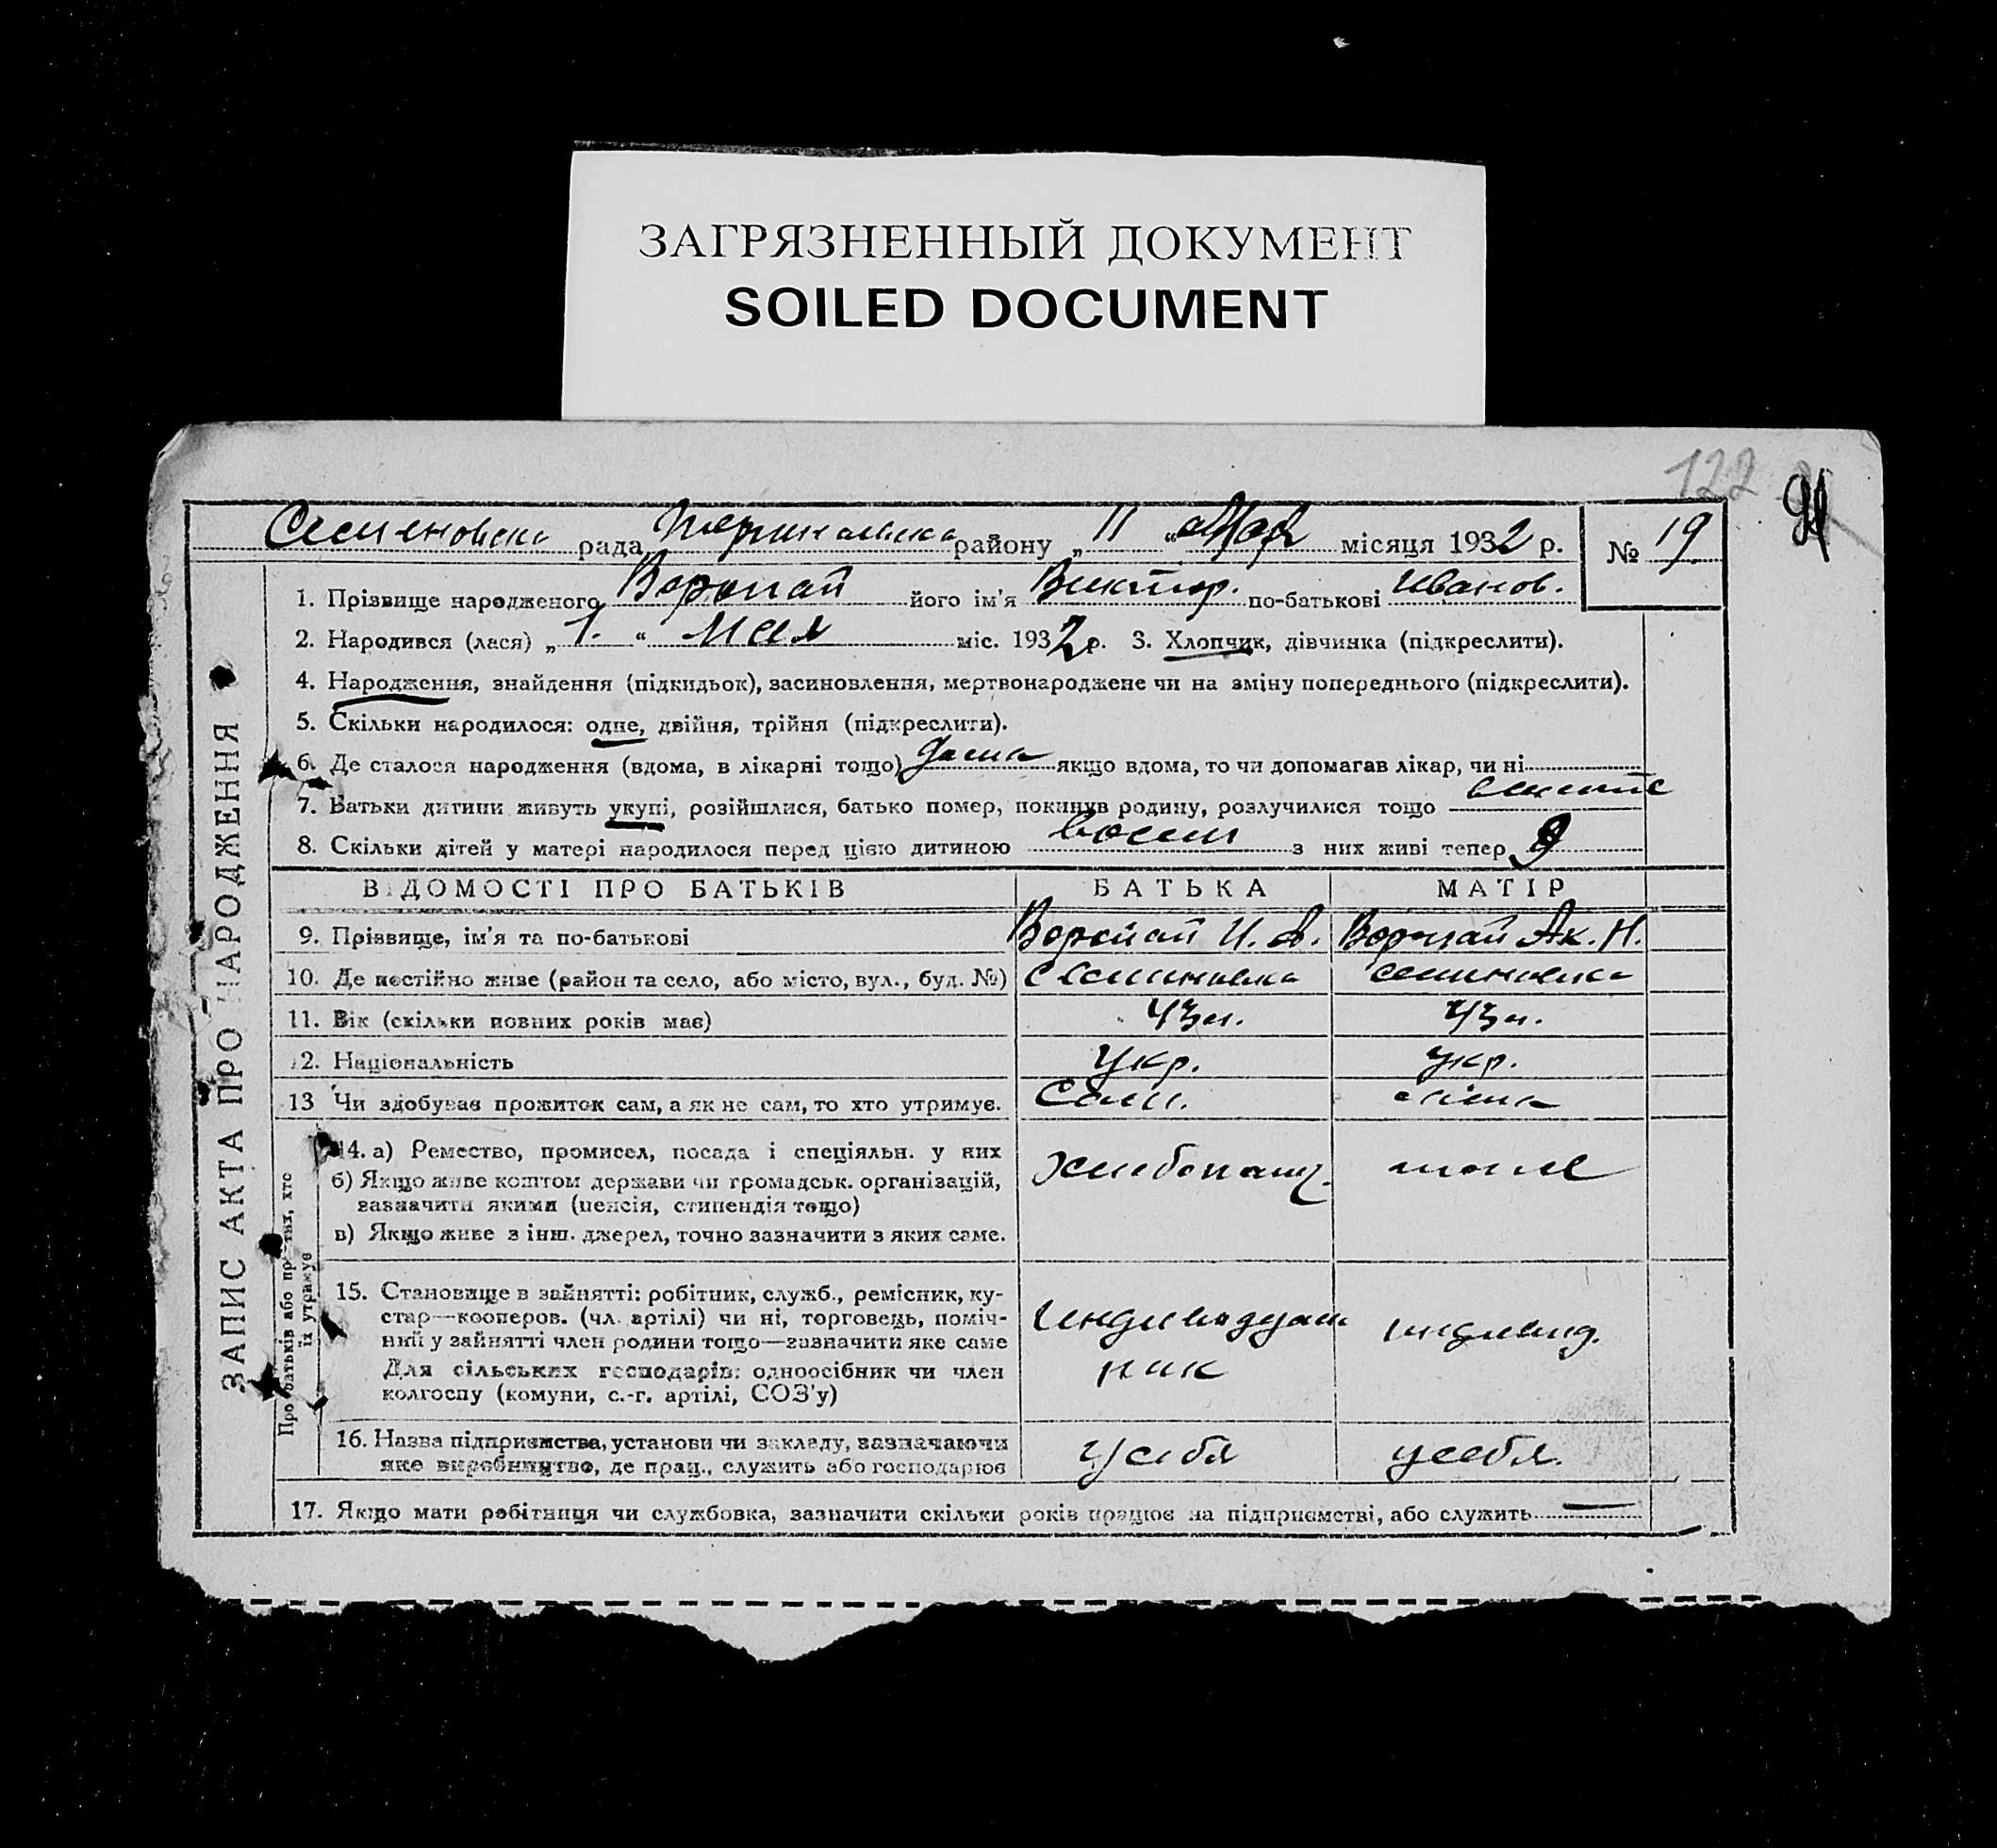 ЗАГРЯЗНЕННЫЙ ДОКУМЕНТ
SOILED DOCUMENT
122
рада района „ 11 “ 1932 р. місяця № 19
1. Прізвище народженого Воропай його ім'я Виктор. по-батькові Иванов.
2. Народився (лася) „ 1. “ мая міс. 1932 р. 3. Хлопчик, дівчинка (підкреслити).
4. Народження, знайдення (підкидьок), засиновлення, мертвонароджене чи на зміну попереднього (підкреслити).
5. Скільки народилося: одне, двійня, трійня (підкреслити).
6. Де сталося народження (вдома, в лікарні тощо) дома якщо вдома, то чи допомагав лікар, чи ні
7. Батьки дитини живуть укупі, розійшлися, батько помер, покинув родину, розлучилися тощо вместе
8. Скільки дітей у матері народилося перед цією дитиною восем з них живі тепер
ВІДОМОСТІ ПРО БАТЬКІВ БАТЬКА МАТІР
9. Прізвище, ім'я та по-батькові Воропай И. А. Воропай Ак. Н.
10. Де постійно живе (район та село, або місто, вул., буд. №)
11. Вік (скільки повних років має) 43 43
12. Національність Укр. укр.
13 Чи здобував прожиток сам, а як не сам, то хто утримує. Сам.
14. а) Ремество, промисел, посада і спеціяльн. у них Хлебопаш.
б) Якщо живе коштом держави чи громадськ. організацій,
зазначити якими (пенсія, стипендія тощо)
в) Якщо живе з інш. джерел, точно зазначити з яких саме.
15. Становище в зайнятті: робітник, служб., ремісник, ку-
стар—кооперов. (чл. артілі) чи ні, торговець, поміч-
ний у зайнятті член родини тощо—зазначити яке саме
Для сільських господарів: одноосібник чи член
колгоспу (комуни, с.-г. артілі, СОЗ'у)
Индивидуал
ник
индивид.
16. Назва підприємства, установи чи закладу, зазначаючи
яке виробництво, де прац., служить або господарює
у себя у себя.
17. Якщо мати робітниця чи службовка, зазначити скільки років працює на підприємстві, або служить —
ЗАПИС АКТА ПРО НАРОДЖЕННЯ
Про батьків або про тих, хто
їх утримує